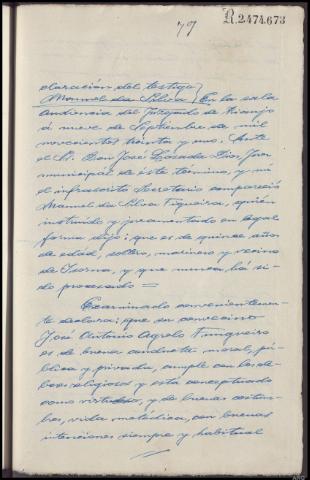 79
R.2474.673
claración del testigo
Manuel da Silva } En la sala
audiencia del Juzgado de
á nueve de Septiembre de mil
novecientos treinta y uno. Ante
el Sr. Don José Losada Dios Juez
municipal de éste termino, y mi
el infrascrito Secretario compareció
Manuel da Silva Figueira, quién
instruido y juramentado en legal
forma dijo: que es de quince años
de edad, soltero, marinero y vecino
de y que nunca há si-
do procesado =
Examinado convenientemen-
te declara: que su convecino
José Antonio Agrelo Fungueiro
es de buena conducta moral, pú-
blica y privada, cumple con los de-
beres religiosos y esta conceptuado
como virtuoso, y de buenas costum-
bres, vida metodica, con buenas
intenciones siempre y habitual